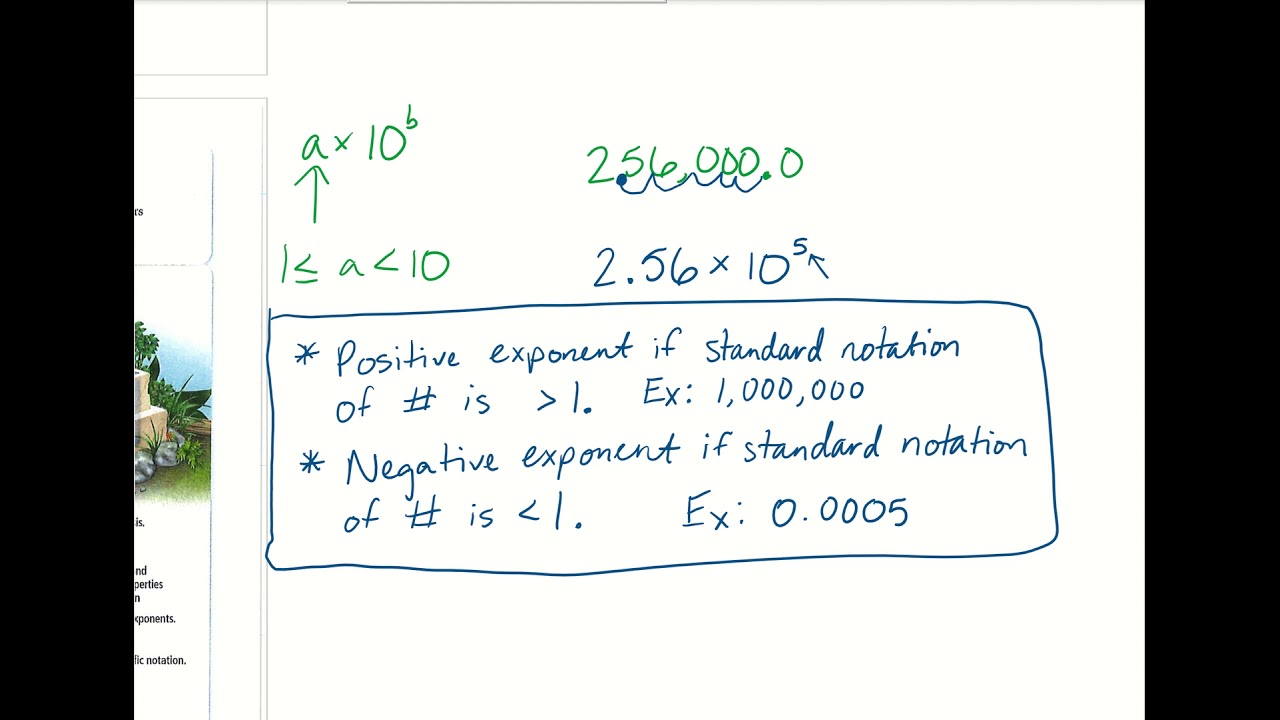 a × 10ᵇ
1 ≤ a < 10
256,000.0
2.56 × 10⁵
* Positive exponent if standard notation
of # is > 1. Ex: 1,000,000
* Negative exponent if standard notation
of # is < 1. Ex: 0.0005
rs
is.
nd
perties
n
xponents.
fic notation.